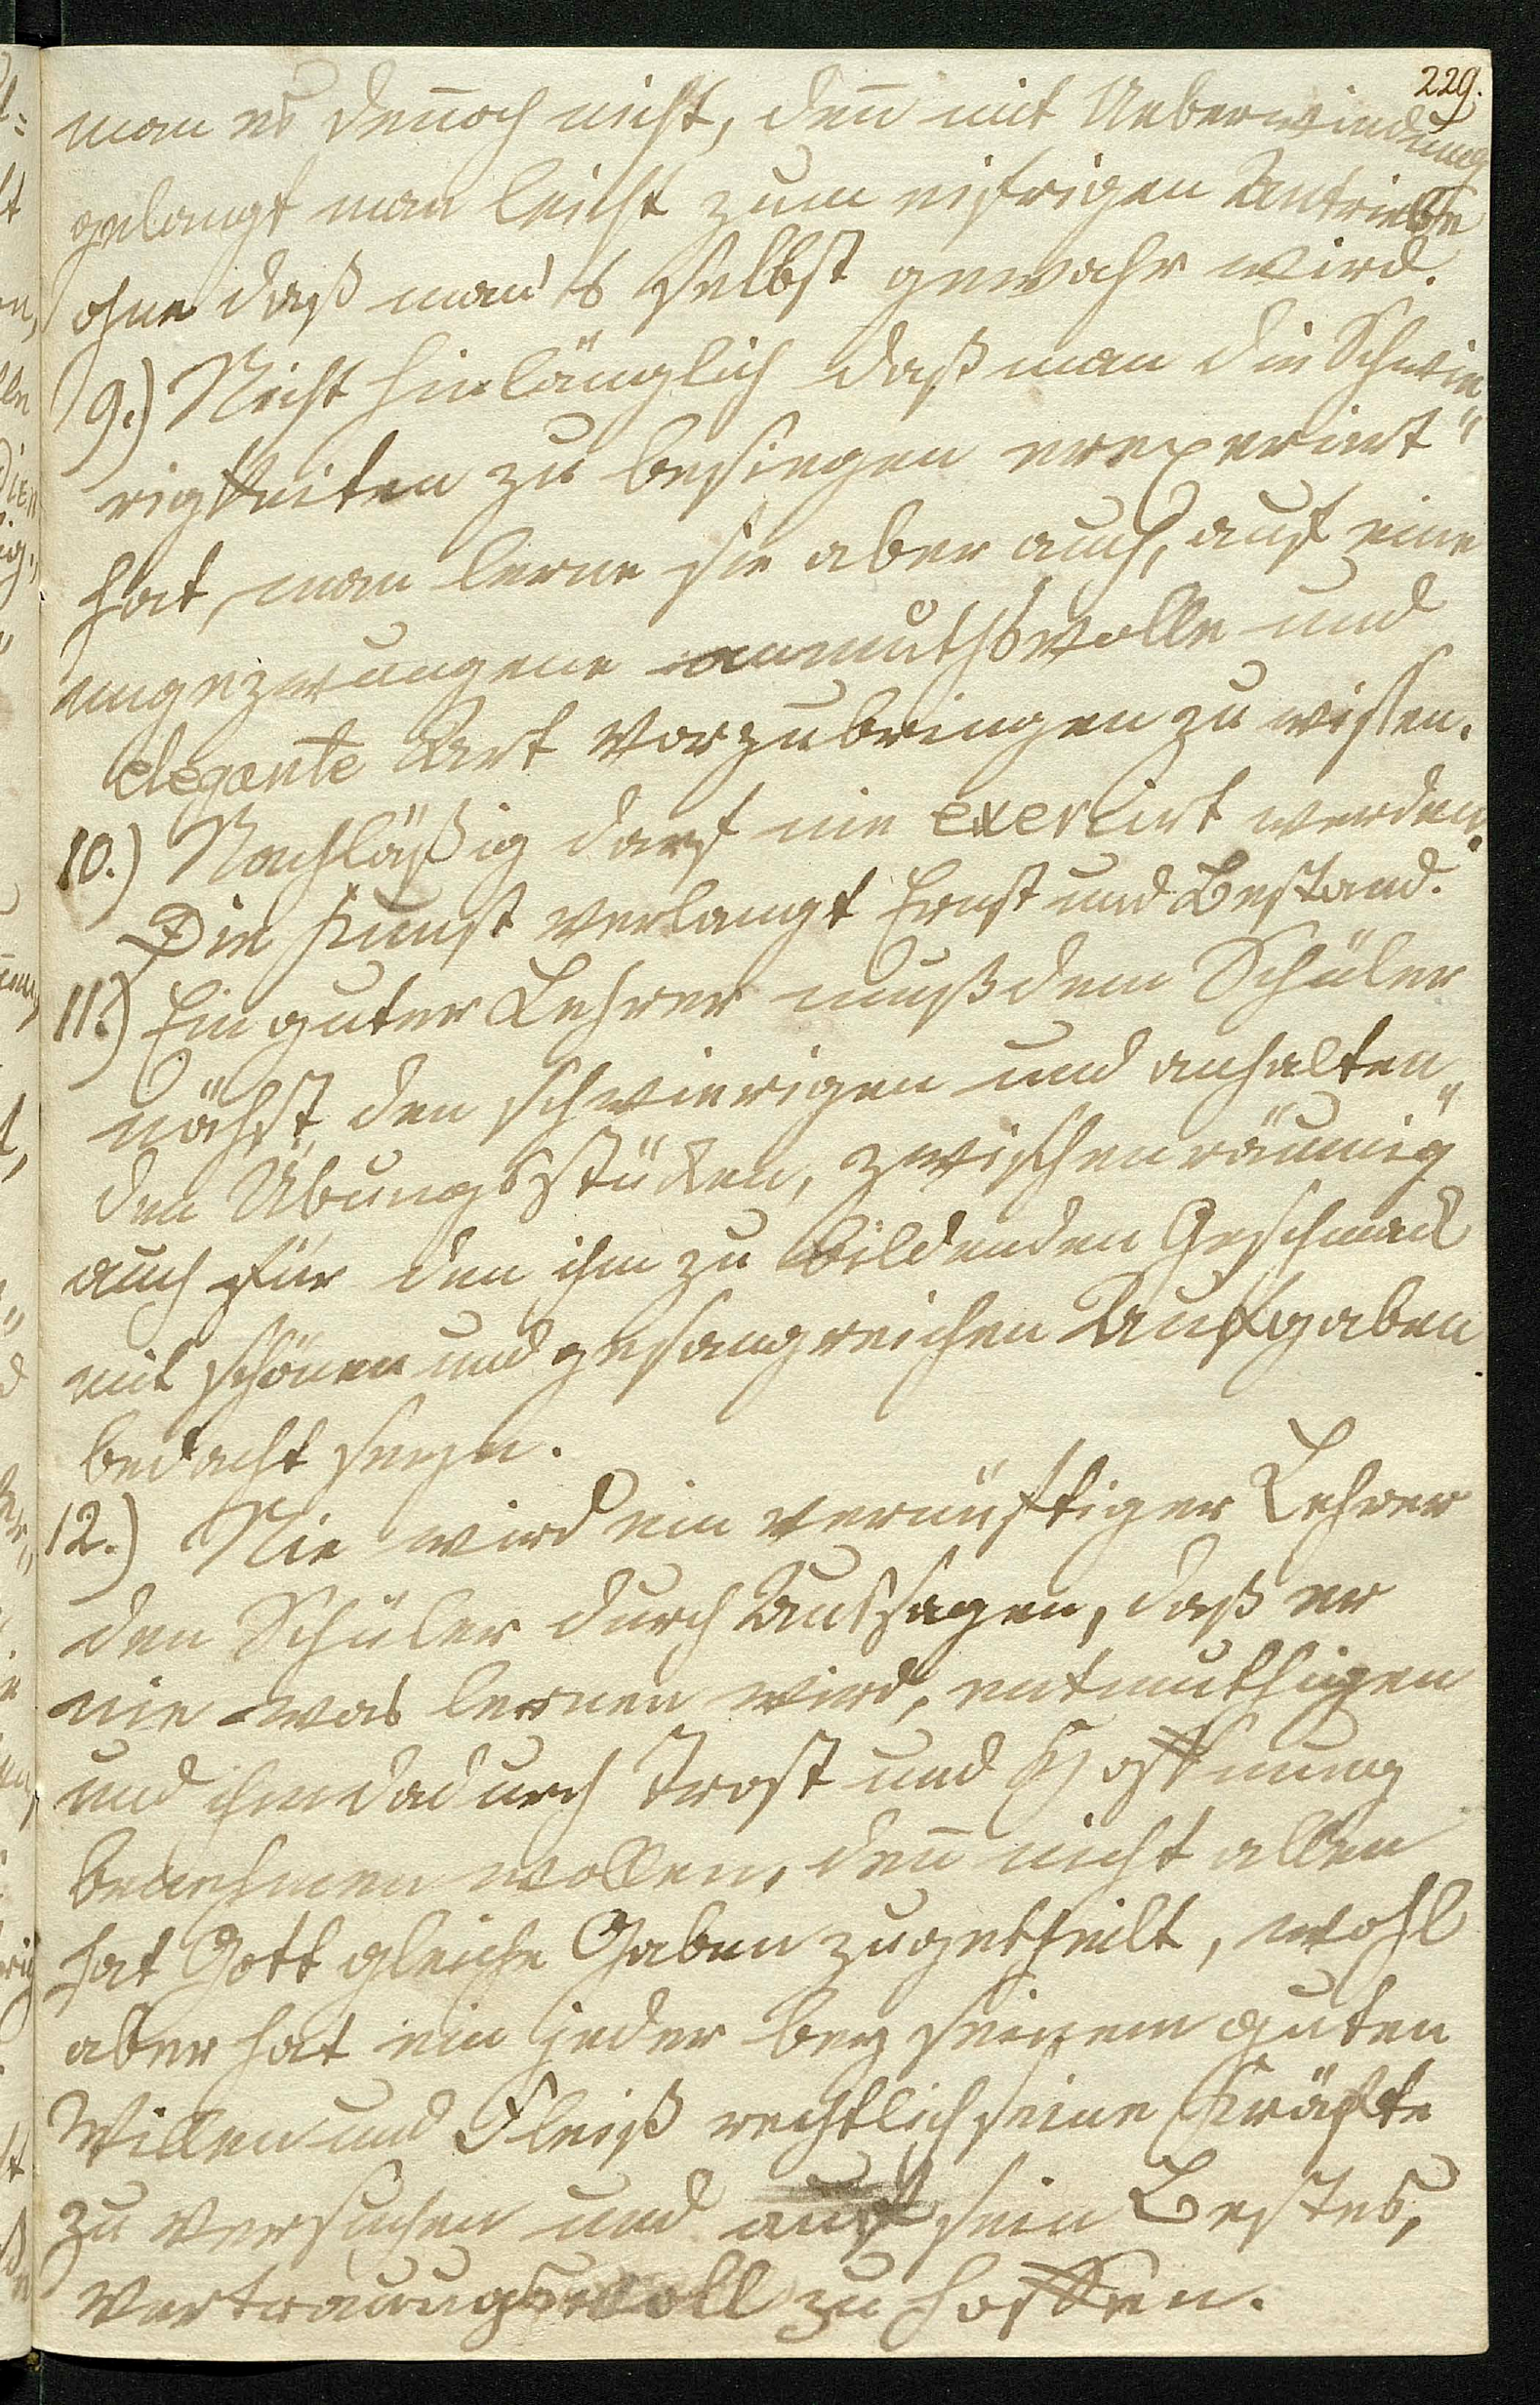 229.
man es deñoch nicht, deñ mit Ueberwindung
gelangt man leicht zum eifrigen Antriebe
ohne daß man's selbst gewahr wird.
9.) Nicht hinlänglich daß man die Schwie„
rigkeiten zu besiegen erexperirt
hat, man lerne sie aber auch, auf eine
ungezwungene anmuthsvolle und
elegante Art vorzubringen zu wissen.
10.) Nachläßig darf nie exercirt werden.
Die Kunst verlangt Ernst und Bestand.
11.) Ein guter Lehrer muß dem Schüler
nächst den schwierigen und anhalten„
den Übungsstücken, zwischenräumig
auch für den ihm zu bildenden Geschmack
mit schönen und gesangreichen Aufgaben
bedacht seyn.
12.) Nie wird ein vernünftiger Lehrer
den Schüler durch Aussagen, daß er
nie was lernen wird, entmuthigen
und ihm dadurch Trost und Hoffnung
benehmen wollen, deñ nicht allen
hat Gott gleiche Gaben zugetheilt, wohl
aber hat ein jeder bey seinem guten
Willen und Fleiß rechtlich seine Kräfte
zu versuchen und auf sein Bestes,
vertrauungsvoll zu hoffen.